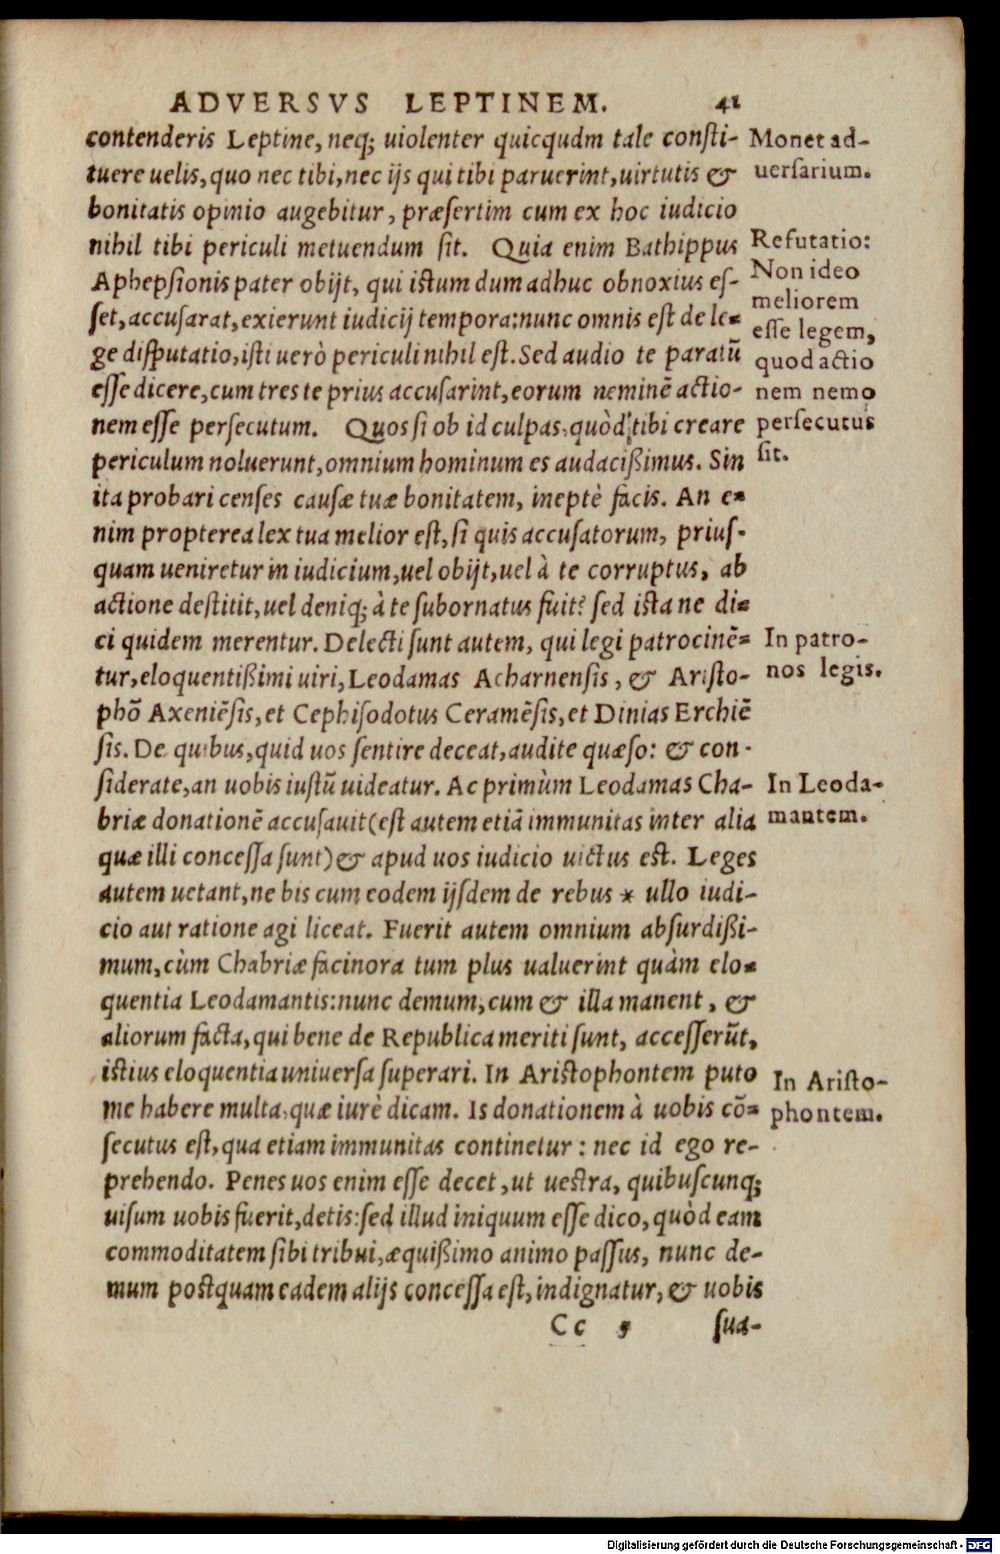 ADVERSVS LEPTINEM. 41
contenderis Leptine, neq; uiolenter quicquam tale consti-
tuere uelis, quo nec tibi, nec ijs qui tibi paruerint, uirtutis &
bonitatis opinio augebitur, præsertim cum ex hoc iudicio
nihil tibi periculi metuendum sit. Quia enim Bathippus
Aphepsionis pater obijt, qui istum dum adhuc obnoxius es-
set, accusarat, exierunt iudicij tempora: nunc omnis est de le-
ge disputatio, isti uerò periculi nihil est. Sed audio te paratū
esse dicere, cum tres te prius accusarint, eorum neminē actio-
nem esse persecutum. Quos si ob id culpas, quòd tibi creare
periculum noluerunt, omnium hominum es audacißimus. Sin
ita probari censes causæ tuæ bonitatem, ineptè facis. An e-
nim propterea lex tua melior est, si quis accusatorum, prius-
quam ueniretur in iudicium, uel obijt, uel à te corruptus, ab
actione destitit, uel deniq; à te subornatus fuit? sed ista ne di-
ci quidem merentur. Delecti sunt autem, qui legi patrocinē-
tur, eloquentißimi uiri, Leodamas Acharnensis, & Aristo-
phō Axeniēsis, et Cephisodotus Ceramēsis, et Dinias Erchiē
sis. De quibus, quid uos sentire deceat, audite quæso: & con-
siderate, an uobis iustū uideatur. Ac primùm Leodamas Cha-
briæ donationē accusauit (est autem etiā immunitas inter alia
quæ illi concessa sunt) & apud uos iudicio uictus est. Leges
autem uetant, ne bis cum eodem ijsdem de rebus * ullo iudi-
cio aut ratione agi liceat. Fuerit autem omnium absurdißi-
mum, cùm Chabriæ facinora tum plus ualuerint quàm elo-
quentia Leodamantis: nunc demum, cum & illa manent, &
aliorum facta, qui bene de Republica meriti sunt, accesserūt,
istius eloquentia uniuersa superari. In Aristophontem puto
me habere multa, quæ iurè dicam. Is donationem à uobis cō-
secutus est, qua etiam immunitas continetur: nec id ego re-
prehendo. Penes uos enim esse decet, ut uestra, quibuscunq;
uisum uobis fuerit, detis: sed illud iniquum esse dico, quòd eam
commoditatem sibi tribui, æquißimo animo passus, nunc de-
mum postquam eadem alijs concessa est, indignatur, & uobis
Cc 5 sua-
Monet ad-
uersarium.
Refutatio:
Non ideo
meliorem
esse legem,
quod actio
nem nemo
persecutus
sit.
In patro-
nos legis.
In Leoda-
mantem.
In Aristo-
phontem.
Digitalisierung gefördert durch die Deutsche Forschungsgemeinschaft - DFG